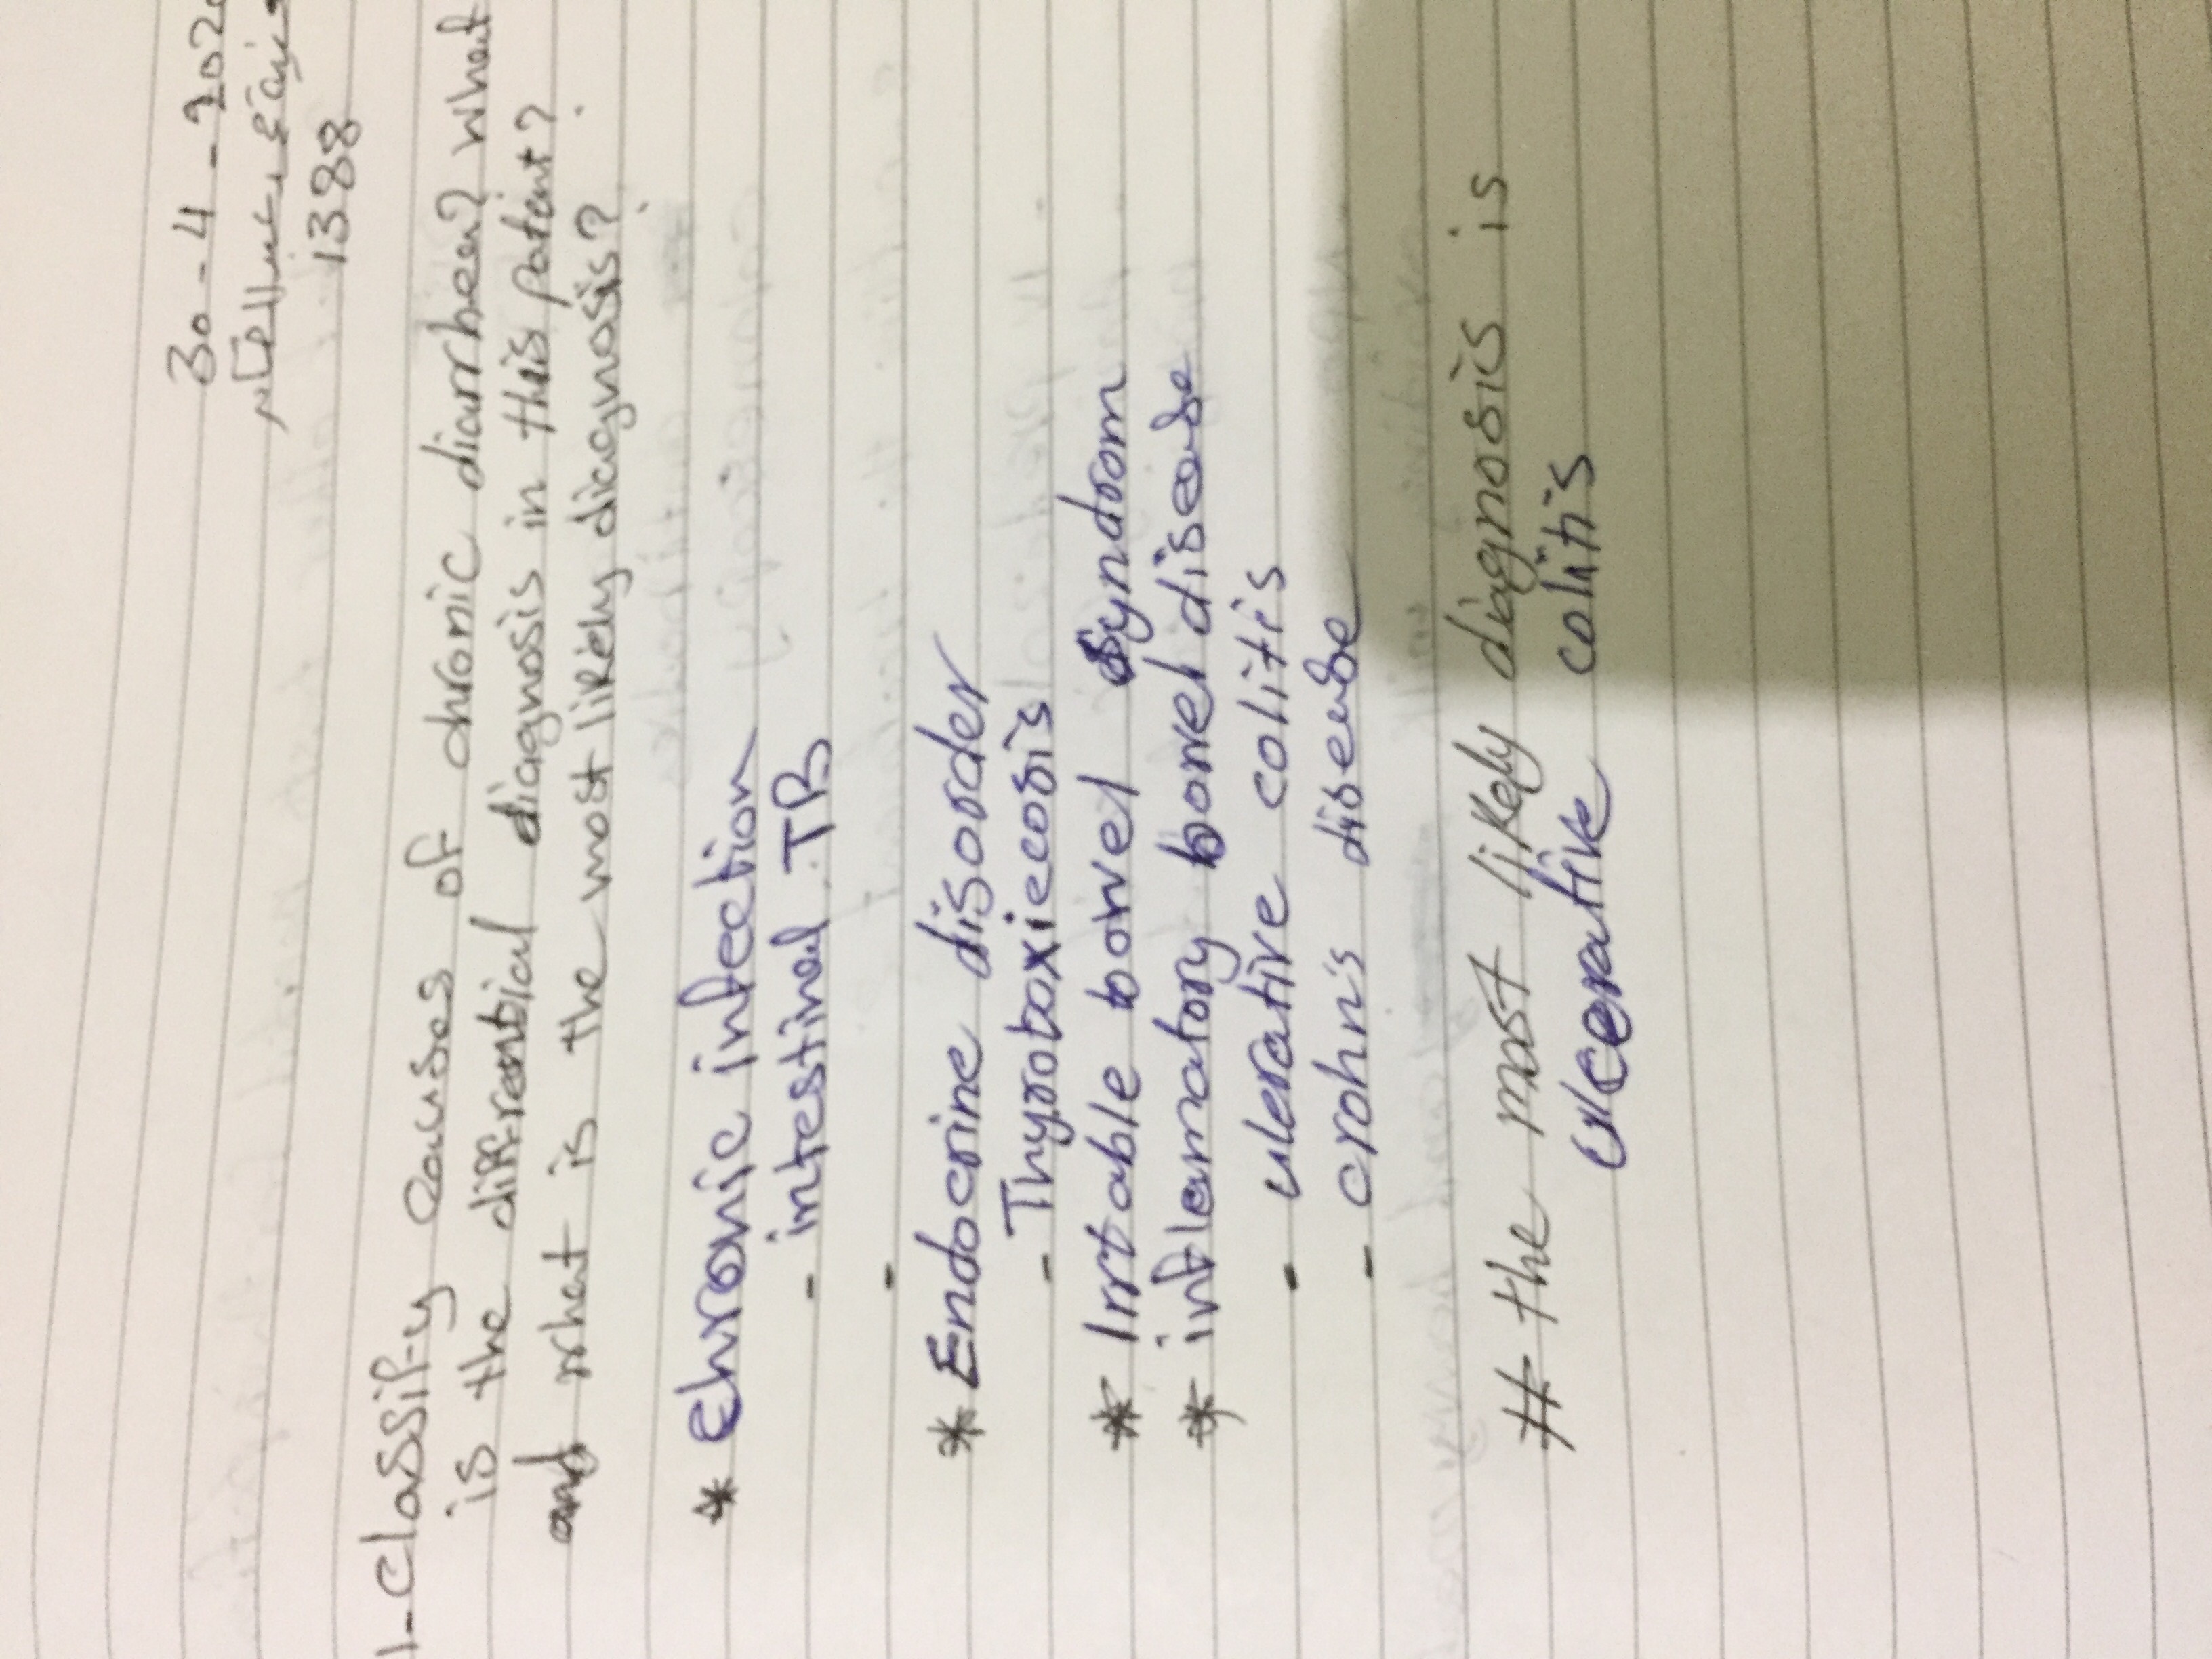 30-4-202
1388
1-Classify causes of chronic diarrheea? what
is the diffrential diagnosis in this patient?
and what is the most likely diagnosis?
* chronic infection
- intestinal TB
-
* Endocrine disorder
- Thyrotoxiecosis
* Irrtable bowel syndrom
* inflamatory bowel disease
- ulerative colitis
- crohn's disease
# the most likely diagnosis is
ulcerative colitis